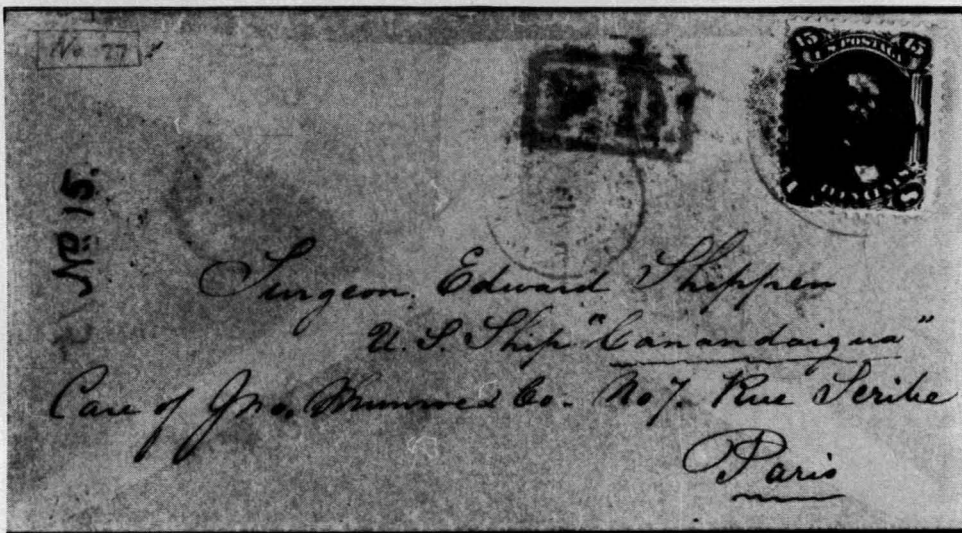 No 77
No 15.
15 U.S. POSTAGE 15
PD
Surgeon, Edward Shippen
U. S. Ship "Canandaigua"
Care of Jno. Munroe & Co. No 7. Rue Scribe
Paris